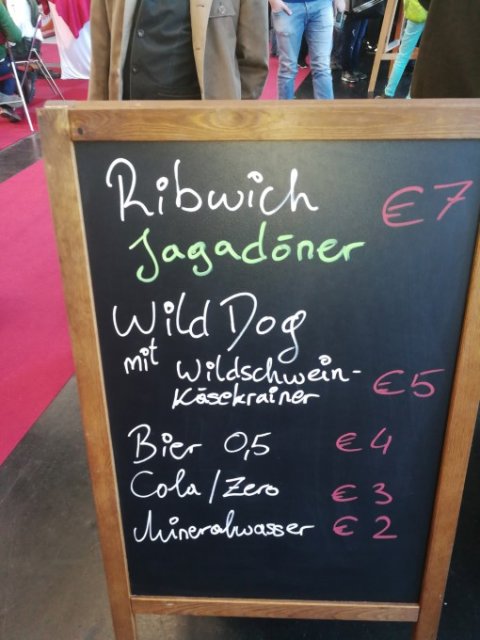 Ribwich € 7
Jagadöner
Wild Dog
mit Wildschwein-
Käsekrainer € 5
Bier 0,5 € 4
Cola/Zero € 3
Mineralwasser € 2